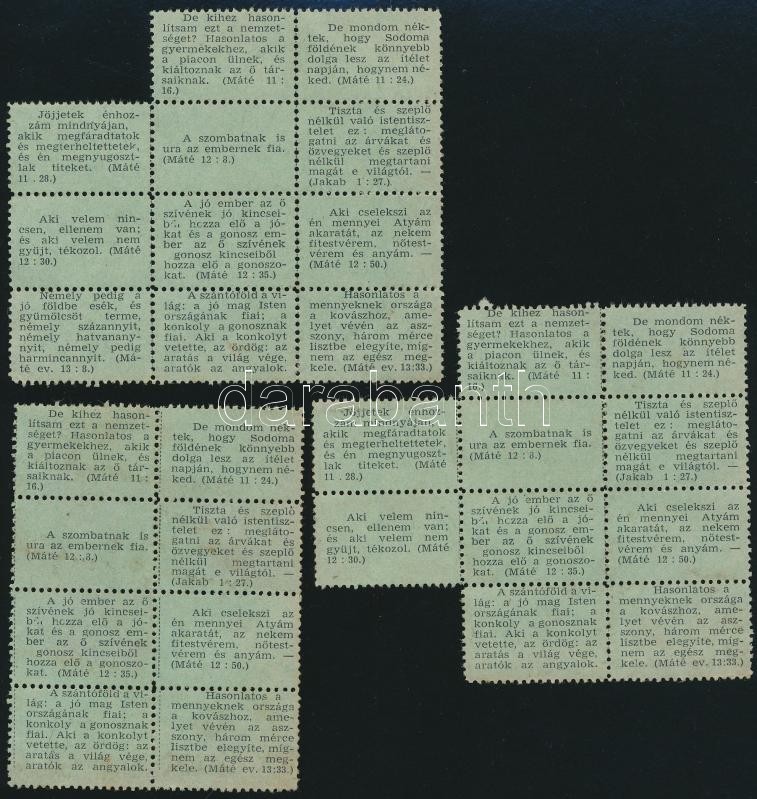 De kihez hason-
lítsam ezt a nemzet-
séget? Hasonlatos a
gyermekekhez, akik
a piacon ülnek, és
kiáltoznak az ő tár-
saiknak. (Máté 11 :
16.)
De mondom nék-
tek, hogy Sodoma
földének könnyebb
dolga lesz az ítélet
napján, hogynem né-
ked. (Máté 11 : 24.)
Jöjjetek énhoz-
zám mindnyájan,
akik megfáradtatok
és megterheltettetek,
és én megnyugoszt-
lak titeket. (Máté
11 . 28.)
A szombatnak is
ura az embernek fia.
(Máté 12 : 8.)
Tiszta és szeplő
nélkül való istentisz-
telet ez : megláto-
gatni az árvákat és
özvegyeket és szeplő
nélkül megtartani
magát e világtól. —
(Jakab 1 : 27.)
Aki velem nin-
csen, ellenem van;
és aki velem nem
gyüjt, tékozol. (Máté
12 : 30.)
A jó ember az ő
szívének jó kincsei-
ből hozza elő a jó-
kat és a gonosz em-
ber az ő szívének
gonosz kincseiből
hozza elő a gonoszo-
kat. (Máté 12 : 35.)
Aki cselekszi az
én mennyei Atyám
akaratát, az nekem
fitestvérem, nőtest-
vérem és anyám. —
(Máté 12 : 50.)
Némely pedig a
jó földbe esék, és
gyümölcsöt terme,
némely százannyit,
némely hatvanany-
nyit, némely pedig
harmincannyit. (Má-
té ev. 13 : 8.)
A szántóföld a vi-
lág: a jó mag Isten
országának fiai; a
konkoly a gonosznak
fiai. Aki a konkolyt
vetette, az ördög: az
aratás a világ vége,
aratók az angyalok.
Hasonlatos a
mennyeknek országa
a kovászhoz, ame-
lyet vévén az asz-
szony, három mérce
lisztbe elegyíte, míg-
nem az egész meg-
kele. (Máté ev. 13:33.)
De kihez hason-
lítsam ezt a nemzet-
séget? Hasonlatos a
gyermekekhez, akik
a piacon ülnek, és
kiáltoznak az ő tár-
saiknak. (Máté 11 :
16.)
De mondom nék-
tek, hogy Sodoma
földének könnyebb
dolga lesz az ítélet
napján, hogynem né-
ked. (Máté 11 : 24.)
Jöjjetek énhoz-
zám mindnyájan,
akik megfáradtatok
és megterheltettetek,
és én megnyugoszt-
lak titeket. (Máté
11 . 28.)
A szombatnak is
ura az embernek fia.
(Máté 12 : 8.)
Tiszta és szeplő
nélkül való istentisz-
telet ez : megláto-
gatni az árvákat és
özvegyeket és szeplő
nélkül megtartani
magát e világtól. —
(Jakab 1 : 27.)
Aki velem nin-
csen, ellenem van;
és aki velem nem
gyüjt, tékozol. (Máté
12 : 30.)
A jó ember az ő
szívének jó kincsei-
ből hozza elő a jó-
kat és a gonosz em-
ber az ő szívének
gonosz kincseiből
hozza elő a gonoszo-
kat. (Máté 12 : 35.)
Aki cselekszi az
én mennyei Atyám
akaratát, az nekem
fitestvérem, nőtest-
vérem és anyám. —
(Máté 12 : 50.)
A szántóföld a vi-
lág: a jó mag Isten
országának fiai; a
konkoly a gonosznak
fiai. Aki a konkolyt
vetette, az ördög: az
aratás a világ vége,
aratók az angyalok.
Hasonlatos a
mennyeknek országa
a kovászhoz, ame-
lyet vévén az asz-
szony, három mérce
lisztbe elegyíte, míg-
nem az egész meg-
kele. (Máté ev. 13:33.)
De kihez hason-
lítsam ezt a nemzet-
séget? Hasonlatos a
gyermekekhez, akik
a piacon ülnek, és
kiáltoznak az ő tár-
saiknak. (Máté 11 :
16.)
De mondom nék-
tek, hogy Sodoma
földének könnyebb
dolga lesz az ítélet
napján, hogynem né-
ked. (Máté 11 : 24.)
A szombatnak is
ura az embernek fia.
(Máté 12 : 8.)
Tiszta és szeplő
nélkül való istentisz-
telet ez : megláto-
gatni az árvákat és
özvegyeket és szeplő
nélkül megtartani
magát e világtól. —
(Jakab 1 : 27.)
A jó ember az ő
szívének jó kincsei-
ből hozza elő a jó-
kat és a gonosz em-
ber az ő szívének
gonosz kincseiből
hozza elő a gonoszo-
kat. (Máté 12 : 35.)
Aki cselekszi az
én mennyei Atyám
akaratát, az nekem
fitestvérem, nőtest-
vérem és anyám. —
(Máté 12 : 50.)
A szántóföld a vi-
lág: a jó mag Isten
országának fiai; a
konkoly a gonosznak
fiai. Aki a konkolyt
vetette, az ördög: az
aratás a világ vége,
aratók az angyalok.
Hasonlatos a
mennyeknek országa
a kovászhoz, ame-
lyet vévén az asz-
szony, három mérce
lisztbe elegyíte, míg-
nem az egész meg-
kele. (Máté ev. 13:33.)
darabanth